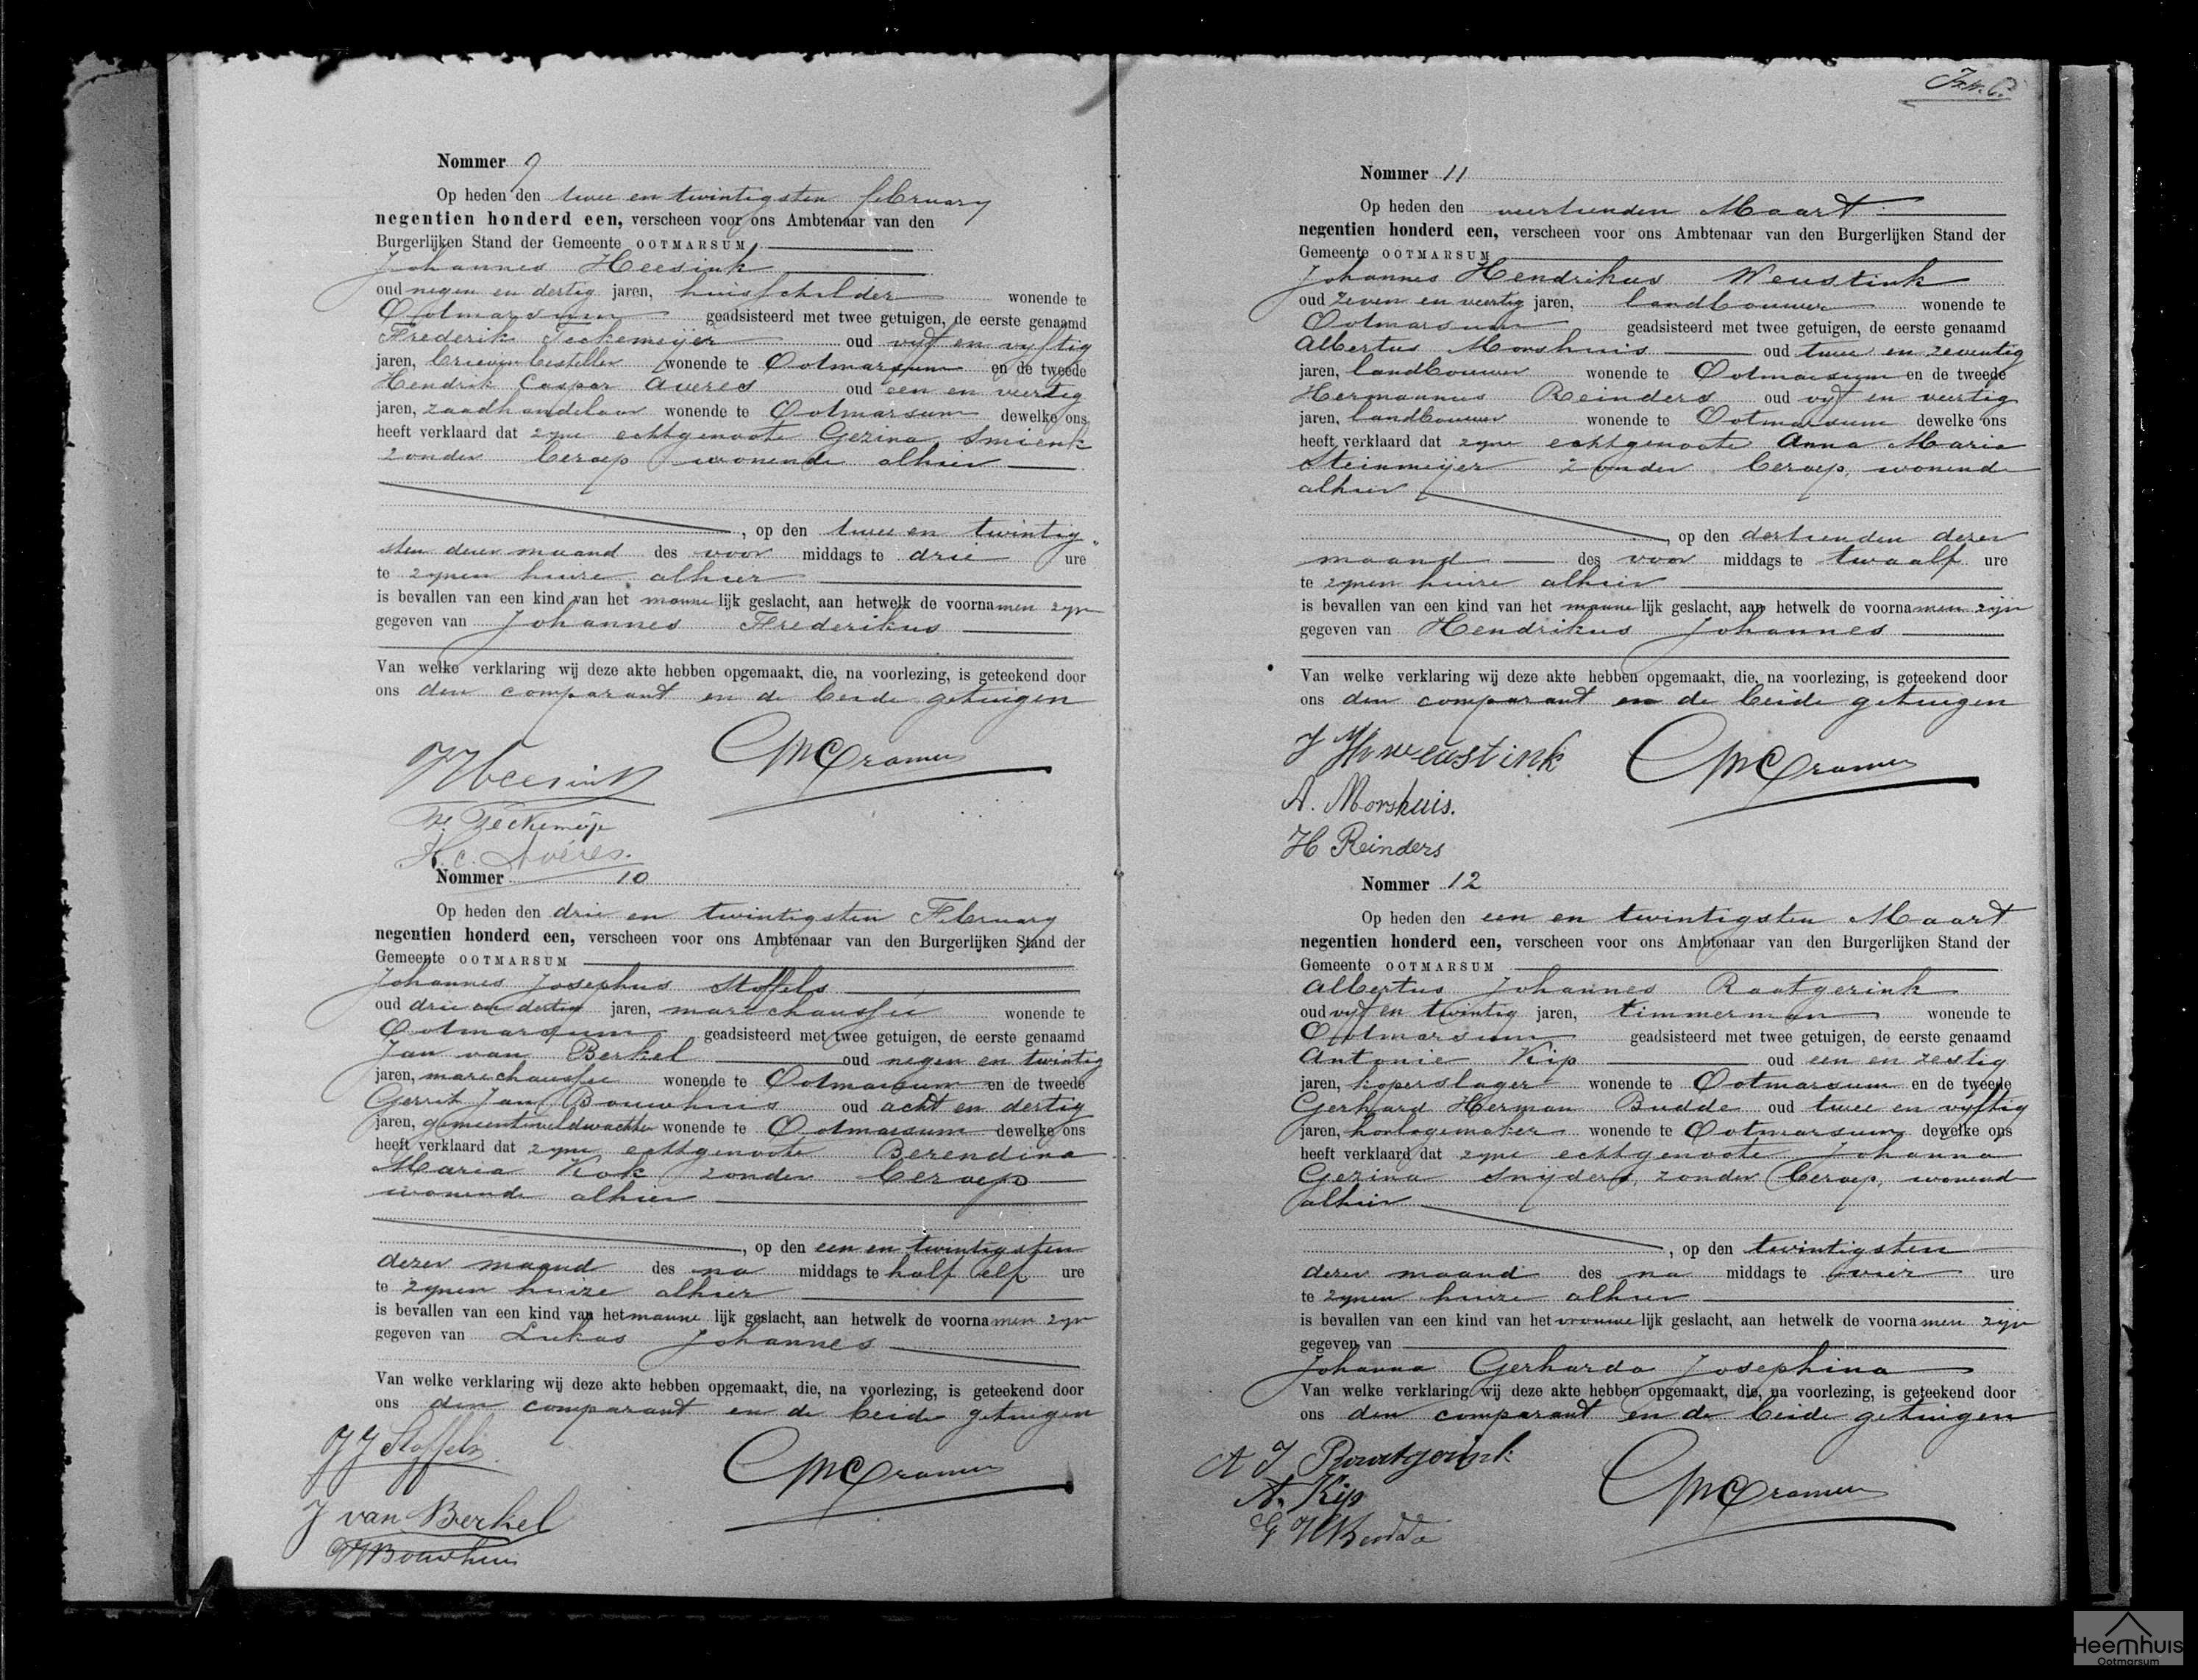 Nommer 9
Op heden den twee en twintigsten february
negentien honderd een, verscheen voor ons Ambtenaar van den
Burgerlijken Stand der Gemeente OOTMARSUM
Johannes Heesink
oud negen en dertig jaren, huisschilder wonende te
Ootmarsum geadsisteerd met twee getuigen, de eerste genaamd
Frederik Teckemeijer oud vijf en vyftig
jaren, brievenbesteller wonende te Ootmarsum en de tweede
Hendrik Caspar Averes oud een en veertig
jaren, zaadhandelaar wonende te Ootmarsum dewelke ons
heeft verklaard dat zyne echtgenoote Gezina Smienk
zonder beroep wonende alhier
, op den twee en twintig„
sten dezer maand des voor middags te drie ure
te zynen huize alhier
is bevallen van een kind van het mannelijk geslacht, aan hetwelk de voornamen zyn
gegeven van Johannes Frederikus
Van welke verklaring wij deze akte hebben opgemaakt, die, na voorlezing, is geteekend door
ons den comparant en de beide getuigen
JHeesink CMCramer
Fr. Teckemeije
H.C. Averes.
Nommer 10
Op heden den drie en twintigsten February
negentien honderd een, verscheen voor ons Ambtenaar van den Burgerlijken Stand der
Gemeente OOTMARSUM
Johannes Josephus Stoffels
oud drie en dertig jaren, marechaussée wonende te
Ootmarsum geadsisteerd met twee getuigen, de eerste genaamd
Jan van Berkel oud negen en twintig
jaren, marechaussée wonende te Ootmarsum en de tweede
Gerrit Jan Bouwhuis oud acht en dertig
jaren, gemeenteveldwachter wonende te Ootmarsum dewelke ons
heeft verklaard dat zyne echtgenoote Berendina
Maria Kok zonder beroep
wonende alhier
, op den een en twintigsten
dezer maand des na middags te half elf ure
te zynen huize alhier
is bevallen van een kind van het mannelijk geslacht, aan hetwelk de voornamen zyn
gegeven van Lukas Johannes
Van welke verklaring wij deze akte hebben opgemaakt, die, na voorlezing, is geteekend door
ons den comparant en de beide getuigen
JJ Stoffels CMCramer
J van Berkel
GJBouwhuis
Nommer 11
Op heden den veertienden Maart
negentien honderd een, verscheen voor ons Ambtenaar van den Burgerlijken Stand der
Gemeente OOTMARSUM
Johannes Hendrikus Weustink
oud zeven en veertig jaren, landbouwer wonende te
Ootmarsum geadsisteerd met twee getuigen, de eerste genaamd
Albertus Morshuis oud twee en zeventig
jaren, landbouwer wonende te Ootmarsum en de tweede
Hermannus Reinders oud vyf en veertig
jaren, landbouwer wonende te Ootmarsum dewelke ons
heeft verklaard dat zyne echtgenoote Anna Maria
Steinmeijer zonder beroep, wonende
alhier
, op den dertienden dezer
maand des voor middags te twaalf ure
te zynen huize alhier
is bevallen van een kind van het mannelijk geslacht, aan hetwelk de voornamen zijn
gegeven van Hendrikus Johannes
Van welke verklaring wij deze akte hebben opgemaakt, die, na voorlezing, is geteekend door
ons den comparant en de beide getuigen
J H weustink CMCramer
A. Morshuis.
H Reinders
Nommer 12
Op heden den een en twintigsten Maart
negentien honderd een, verscheen voor ons Ambtenaar van den Burgerlijken Stand der
Gemeente OOTMARSUM
Albertus Johannes Raatgerink
oud vyf en twintig jaren, timmerman wonende te
Ootmarsum geadsisteerd met twee getuigen, de eerste genaamd
Antonie Kip oud een en zestig
jaren, koperslager wonende te Ootmarsum en de tweede
Gerhard Herman Budde oud twee en vyftig
jaren, horlogemaker wonende te Ootmarsum dewelke ons
heeft verklaard dat zyne echtgenoote Johanna
Gezina Snyders, zonder beroep, wonend
alhier
, op den twintigsten
dezer maand des na middags te vier ure
te zynen huize alhier
is bevallen van een kind van het vrouwelijk geslacht, aan hetwelk de voornamen zijn
gegeven van
Johanna Gerharda Josephina
Van welke verklaring wij deze akte hebben opgemaakt, die, na voorlezing, is geteekend door
ons den comparant en de beide getuigen
A J Raatgerink CMCramer
A. Kip
G H Budde
Heemhuis
Ootmarsum